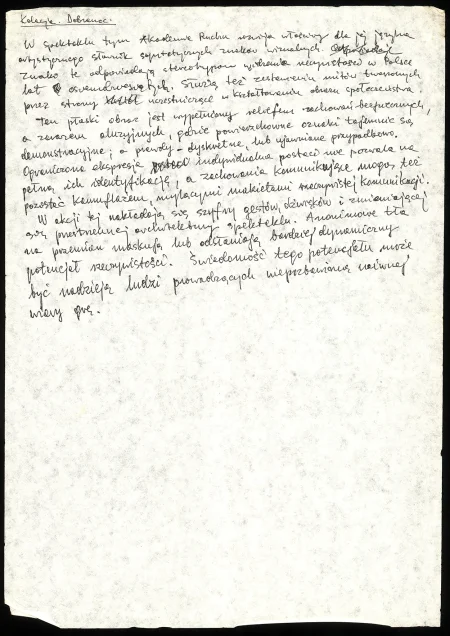 Kolacja. Dobranoc.
W spektaklu tym Akademia Ruchu rozwija właściwy dla jej języka
artystycznego słownik syntetycznych znaków wizualnych.
Znaki te odpowiadają stereotypom widzenia rzeczywistości w Polsce
lat osiemdziesiątych. Służą też zestawieniu mitów tworzonych
przez strony uczestniczące w kształtowaniu obrazu społeczeństwa
Ten płaski obraz jest wypełniony reliefem zachowań bezpiecznych,
a zarazem aluzyjnych, gdzie powierzchowne oznaki tajemnic są
demonstracyjne, a prawdy - dyskretne, lub ujawniane przypadkowo.
Ograniczona ekspresja indywidualna postaci nie pozwala na
pełną ich identyfikację, a zachowania komunikujące mogą też
pozostać kamuflażem, mylącymi makietami rzeczywistej komunikacji.
W akcji tej nakładają się szyfry gestów, dźwięków i zmieniającej
się przestrzennej architektury spektaklu. Anonimowe tła
na przemian maskują lub odsłaniają bardziej dynamiczny
potencjał rzeczywistości. Świadomość tego potencjału może
być nadzieją ludzi prowadzących niepozbawioną naiwnej
wiary grę.